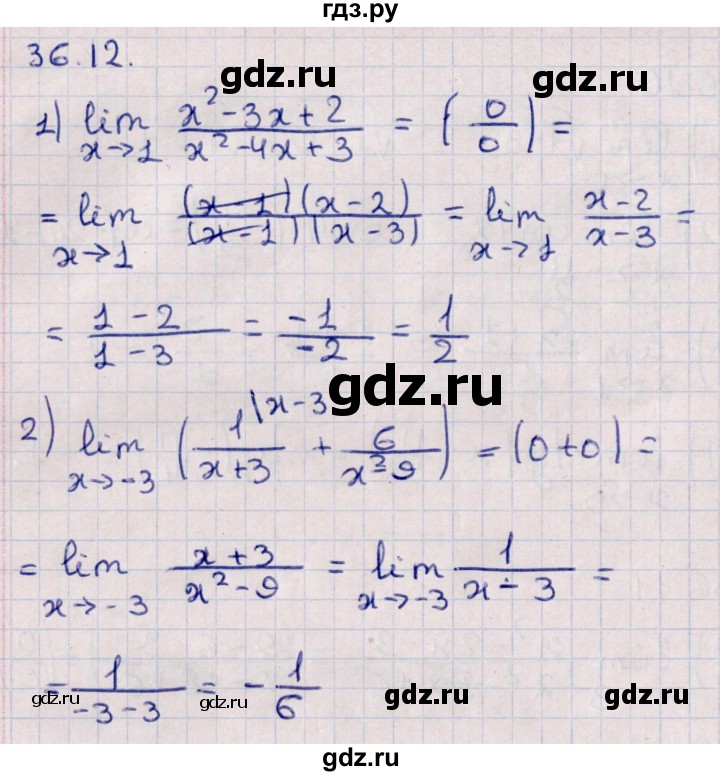 гдз.ру
36.12.
gdz.ru
gdz.ru
1) lim x→1 (x²-3x+2)/(x²-4x+3) = (0/0) =
= lim x→1 ((x-1)(x-2))/((x-1)(x-3)) = lim x→1 (x-2)/(x-3) =
= (1-2)/(1-3) = (-1)/(-2) = 1/2
gdz.ru
2) lim x→-3 (1\x-3/(x+3) + 6/(x²-9)) = (0+0) =
= lim x→-3 (x+3)/(x²-9) = lim x→-3 1/(x-3) =
= 1/(-3-3) = -1/6
gdz.ru
gdz.ru
gdz.ru
gdz.ru
gdz.ru